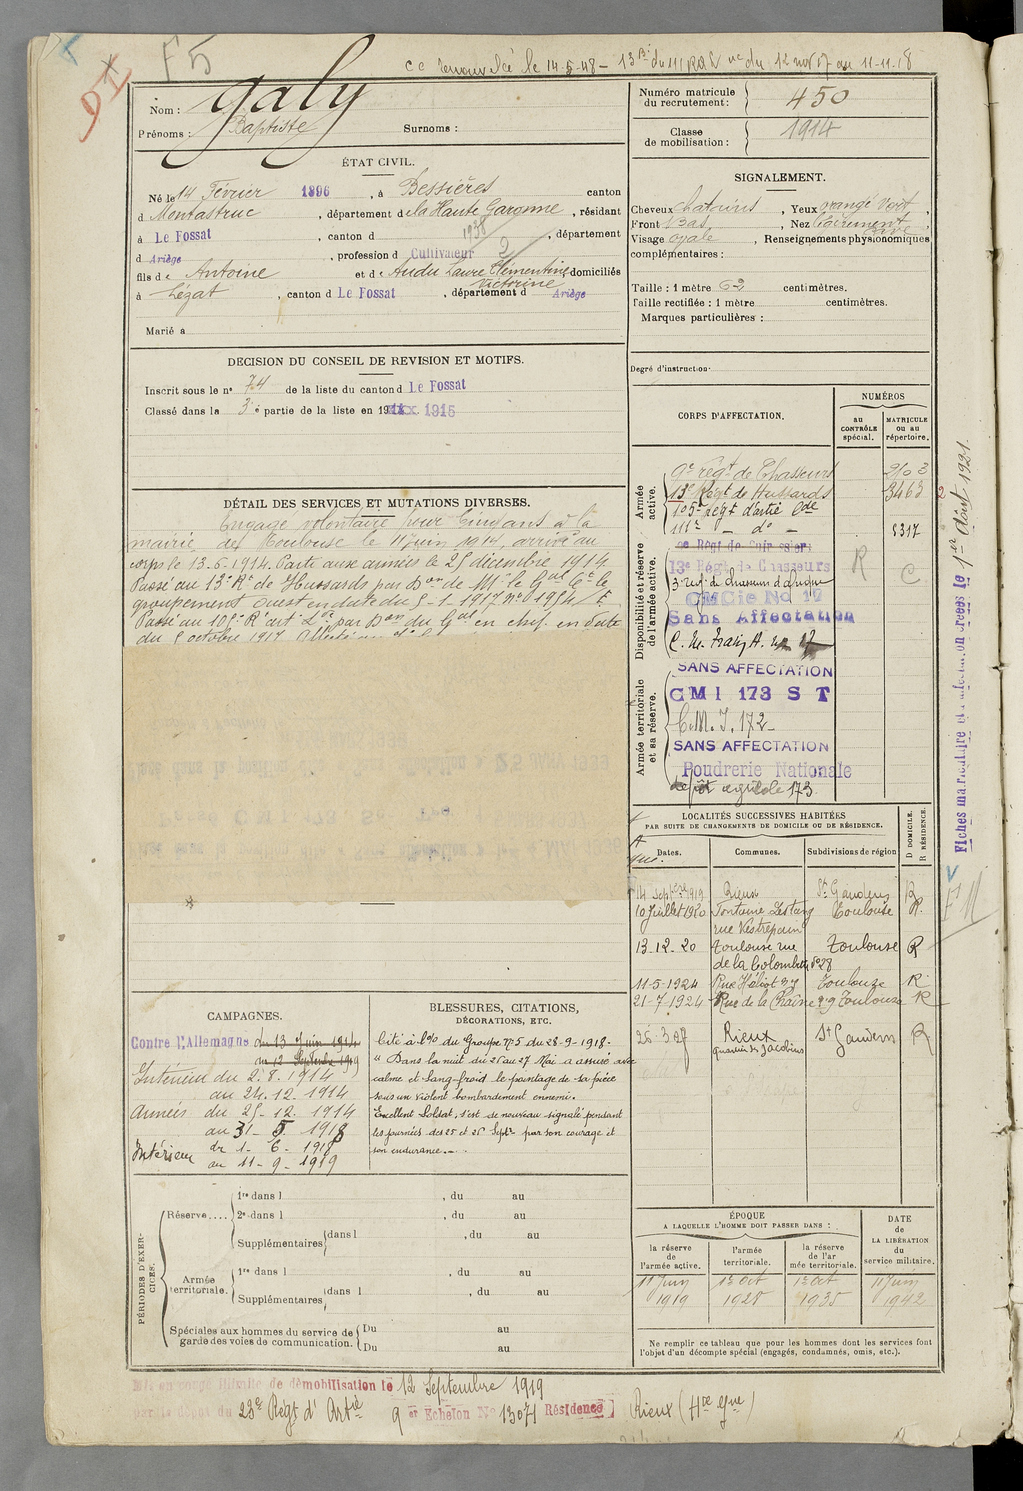 F5
Nom : Galy
Prénoms : Baptiste Surnoms :
Numéro matricule du recrutement : 450
Classe de mobilisation : 1914
ÉTAT CIVIL.
Né le 14 Février 1896, à Bessières canton
d Montastruc, département de la Haute Garonne, résidant
à Le Fossat, canton d , département
d Ariège, profession d Cultivateur 2
fils de Antoine et de Audu Laure Clémentine Victorine domiciliés
à Lézat, canton d Le Fossat, département d Ariège
Marié à
SIGNALEMENT.
Cheveux chatains, Yeux orangé vert,
Front Bas, Nez
Visage ovale, Renseignements physionomiques
complémentaires :
Taille : 1 mètre 62 centimètres.
Taille rectifiée : 1 mètre centimètres.
Marques particulières :
Degré d'instruction.
DÉCISION DU CONSEIL DE REVISION ET MOTIFS.
Inscrit sous le n° 74 de la liste du canton d Le Fossat
Classé dans la 3e partie de la liste en 1915
DÉTAIL DES SERVICES ET MUTATIONS DIVERSES.
Engagé volontaire pour cinq ans à la
mairie de Toulouse le 11 juin 1914, arrivé au
corps le 13.6.1914. Parti aux armées le 25 décembre 1914
Passé au 13e Rt de Hussards par Don de Mr le Gal Ct le
groupement Ouest en date du 5-1-1917 n° 1954/F.
Passé au 105e Rt art Lde par Don du Gal en chef en date
du 5 octobre 1917.
CORPS D'AFFECTATION.
NUMÉROS
au CONTRÔLE spécial.
MATRICULE ou au répertoire.
Armée active.
9e régt de Chasseurs 2103
13e Régt de Hussards 3463
105e Régt d'artie Lde
111e - do - 8317
Disponibilité et réserve de l'armée active.
13e Régt de Chasseurs R C
3e régt de Chasseurs d'Afrique
CMCie No 17
Sans Affectation
Armée territoriale et sa réserve.
SANS AFFECTATION
CMI 173 S T
C.M.I. 172
SANS AFFECTATION
Poudrerie Nationale
dépôt agricole 173
Fiches matriculaire et d'affectation créées le 1er Août 1921.
LOCALITÉS SUCCESSIVES HABITÉES
PAR SUITE DE CHANGEMENTS DE DOMICILE OU DE RÉSIDENCE.
Dates. Communes. Subdivisions de région D DOMICILE. R RÉSIDENCE.
14 Septbre 1919 Rieux St Gaudens R
10 Juillet 1920 Fontaine Lestang Toulouse R.
rue Vestrepain
13-12-20 Toulouse rue Toulouse R
de la Colombette n°28
11-5-1924 Rue Héliot 29 Toulouse R
21-7-1924 Rue de la Chaîne 29 Toulouse R
26-3-27 Rieux St Gaudens R
quartier des Jacobins
CAMPAGNES.
Contre l'Allemagne du 13 juin 1914
au 12 Septembre 1919
Intérieur du 2.8.1914
au 24.12.1914
Armées du 25.12.1914
au 31-5 1918
Intérieur du 1-6-1918
au 11-9-1919
BLESSURES, CITATIONS,
DÉCORATIONS, ETC.
Cité à l'O/o du Groupe n°5 du 28-9-1918.
" Dans la nuit du 26 au 27 Mai a assuré avec
calme et sang-froid le pointage de sa pièce
sous un violent bombardement ennemi.
Excellent Soldat, s'est de nouveau signalé pendant
les journées des 25 et 26 Septbre par son courage et
son endurance.
PÉRIODES D'EXERCICES.
Réserve....
1re dans l , du au
2e dans l , du au
Supplémentaires dans l , du au
Armée territoriale.
1re dans l , du au
Supplémentaires dans l , du au
Spéciales aux hommes du service de garde des voies de communication. Du au
Du au
ÉPOQUE
A LAQUELLE L'HOMME DOIT PASSER DANS :
la réserve de l'armée active. l'armée territoriale. la réserve de l'armée territoriale.
DATE de LA LIBÉRATION du service militaire.
11 juin 1919 1er Oct 1928 1er Oct 1935 11 juin 1942
Ne remplir ce tableau que pour les hommes dont les services font
l'objet d'un décompte spécial (engagés, condamnés, omis, etc.).
Mis en congé illimité de démobilisation le 12 Septembre 1919
par le dépôt du 23e Régt d'Artie 9e Echelon No 13071 Résidence Rieux (Hte Gne)